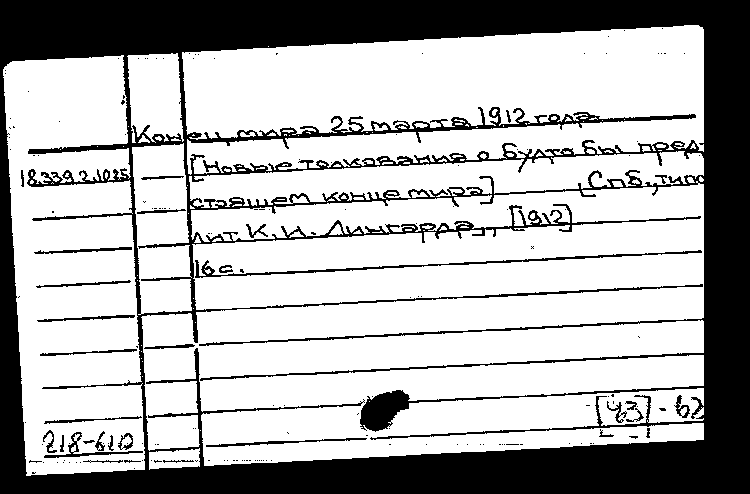 Конец мира 25 марта 1912 года.
18.339.2.1025 [Новые толкования о будто бы пред-
стоящем конце мира] [Спб., типо
лит. К. И. Лингарда,, [1912]
16 с.
218-610 [43] - 62